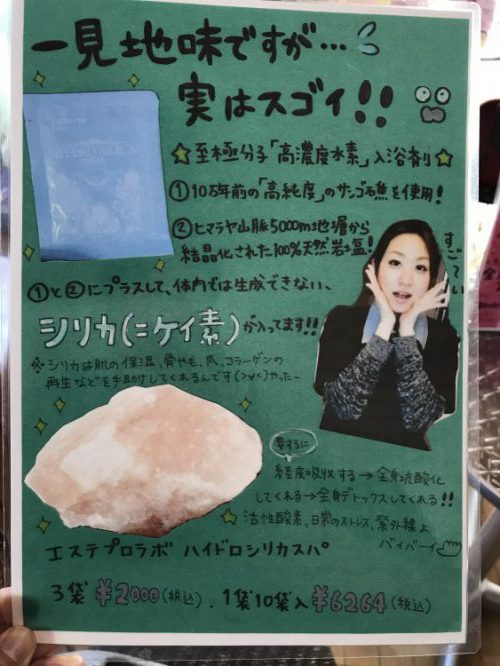 一見地味ですが…
実はスゴイ!!
☆至極分子「高濃度水素」入浴剤☆
①10万年前の「高純度」のサンゴ礁を使用!
②ヒマラヤ山脈5000m地層から
結晶化された100%天然岩塩!
すごーい
①と②にプラスして、体内では生成できない、
シリカ(=ケイ素)が入ってます!!
※シリカは肌の保湿、骨や毛、爪、コラーゲンの
再生などを手助けしてくれるんです(>v<)やったー
要するに
経皮吸収する→全身抗酸化
してくれる→全身デトックスしてくれる!!
☆活性酸素、日常のストレス、紫外線よ
バイバーイ
エステプロラボ ハイドロシリカスパ
3袋 ¥2000(税込)、1袋10袋入 ¥6264(税込)